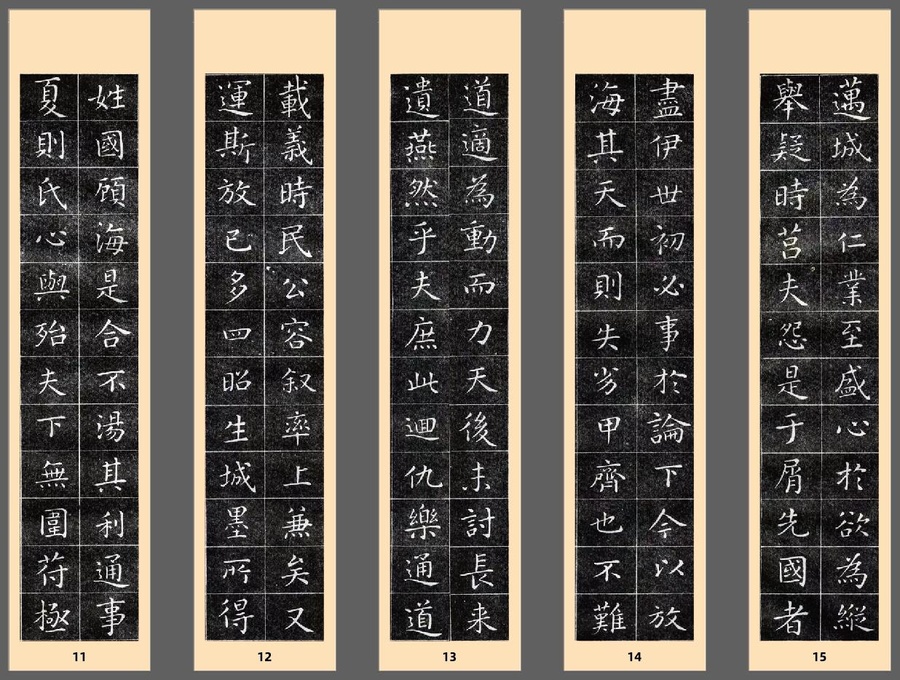 姓國顧海是合不湯其利通事
夏則氏心與殆夫下無圍苻極
11
載義時民公容叙率上兼矣又
運斯放已多四昭生城墨所得
12
道適為動而力天後未討長来
遺燕然乎夫庶此迴仇樂通道
13
盡伊世初必事於論下今以放
海其天而則失劣甲齊也不難
14
邁城為仁業至盛心於欲為縱
舉疑時莒夫怨是于屑先國者
15